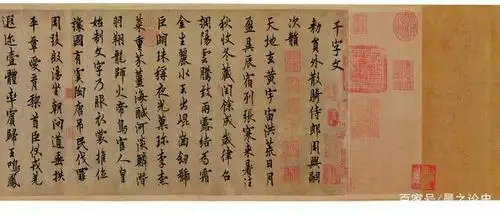 千字文
勑員外散騎侍郎周興嗣
次韻
天地玄黃宇宙洪荒日月
盈昃辰宿列張寒來暑往
秋收冬藏閏餘成歲律召
調陽雲騰致雨露結為霜
金生麗水玉出崐崗劒號
巨闕珠稱夜光菓珍李柰
菜重芥薑海醎河淡鱗潛
羽翔龍師火帝鳥官人皇
始制文字乃服衣裳推位
讓國有虞陶唐吊民伐罪
周發殷湯坐朝問道垂拱
平章愛育黎首臣伏戎羌
遐迩壹體率賓歸王鳴鳳
百家号/之论史